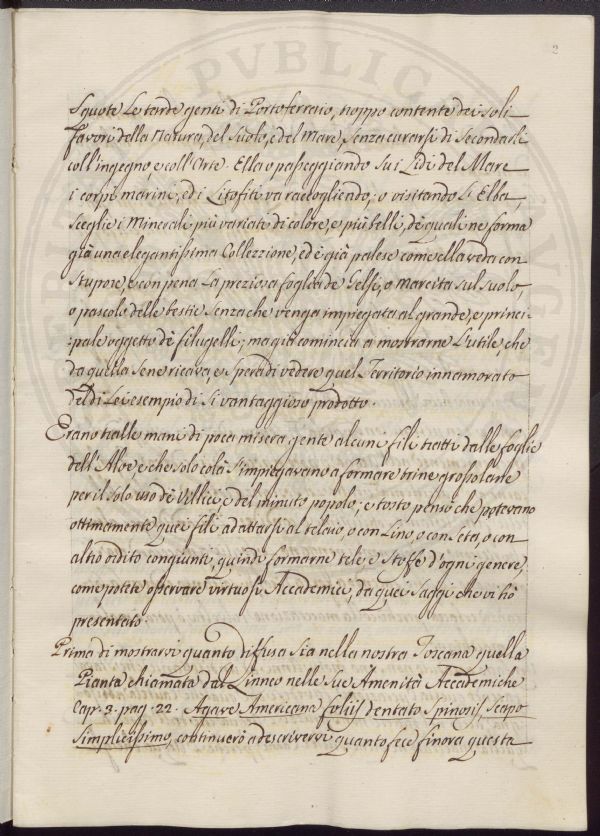 2
Squote le tarde genti di Portoferraio, troppo contente dei soli
favori della Natura, del Suolo, e del Mare, senza curarsi di secondarli
coll'ingegno, e coll'Arte. Ella o passeggiando su i Lidi del Mare
i corpi marini, ed i Litofiti va raccogliendo; o visitando L'Elba,
sceglie i Minerali più variati di colore, e più belli, de quali ne forma
già una elegantissima Collezzione, ed è già palese come ella veda con
stupore, e con pena la preziosa foglia de Gelsi, o marcita sul suolo,
o pascolo delle bestie senza che venga impiegata al grande, e princi=
=pale oggetto de filugelli; ma già comincia a mostrarne l'utile, che
da quella se ne ricava, e spera di vedere quel Territorio innamorato
del di Lei esempio di si vantaggioso prodotto.
Erano tralle mani di poca misera gente alcune fili tratti dalle foglie
dell'Aloe, e che solo colà s'impiegavano a formare trine grossolane
per il solo uso de Villici, e del minuto popolo; e tosto pensò che potevano
ottimamente quei fili adattarsi al telaio, o con Lino, o con Seta, o con
altro ordito congiunti, quindi formarne tele, e Stoffe d'ogni genere,
come potete osservare virtuosi Accademici, da quei saggi che vi hò
presentato.
Prima di mostrarvi quanto diffusa sia nella nostra Toscana quella
Pianta chiamata dal Linneo nelle sue Amenità Accademiche
Cap. 3. pag. 22. Agave Americana foliis dentato spinosis, scapo
simplicissimo, continuerò a descrivervi quanto fece finora questa
PVBLIC